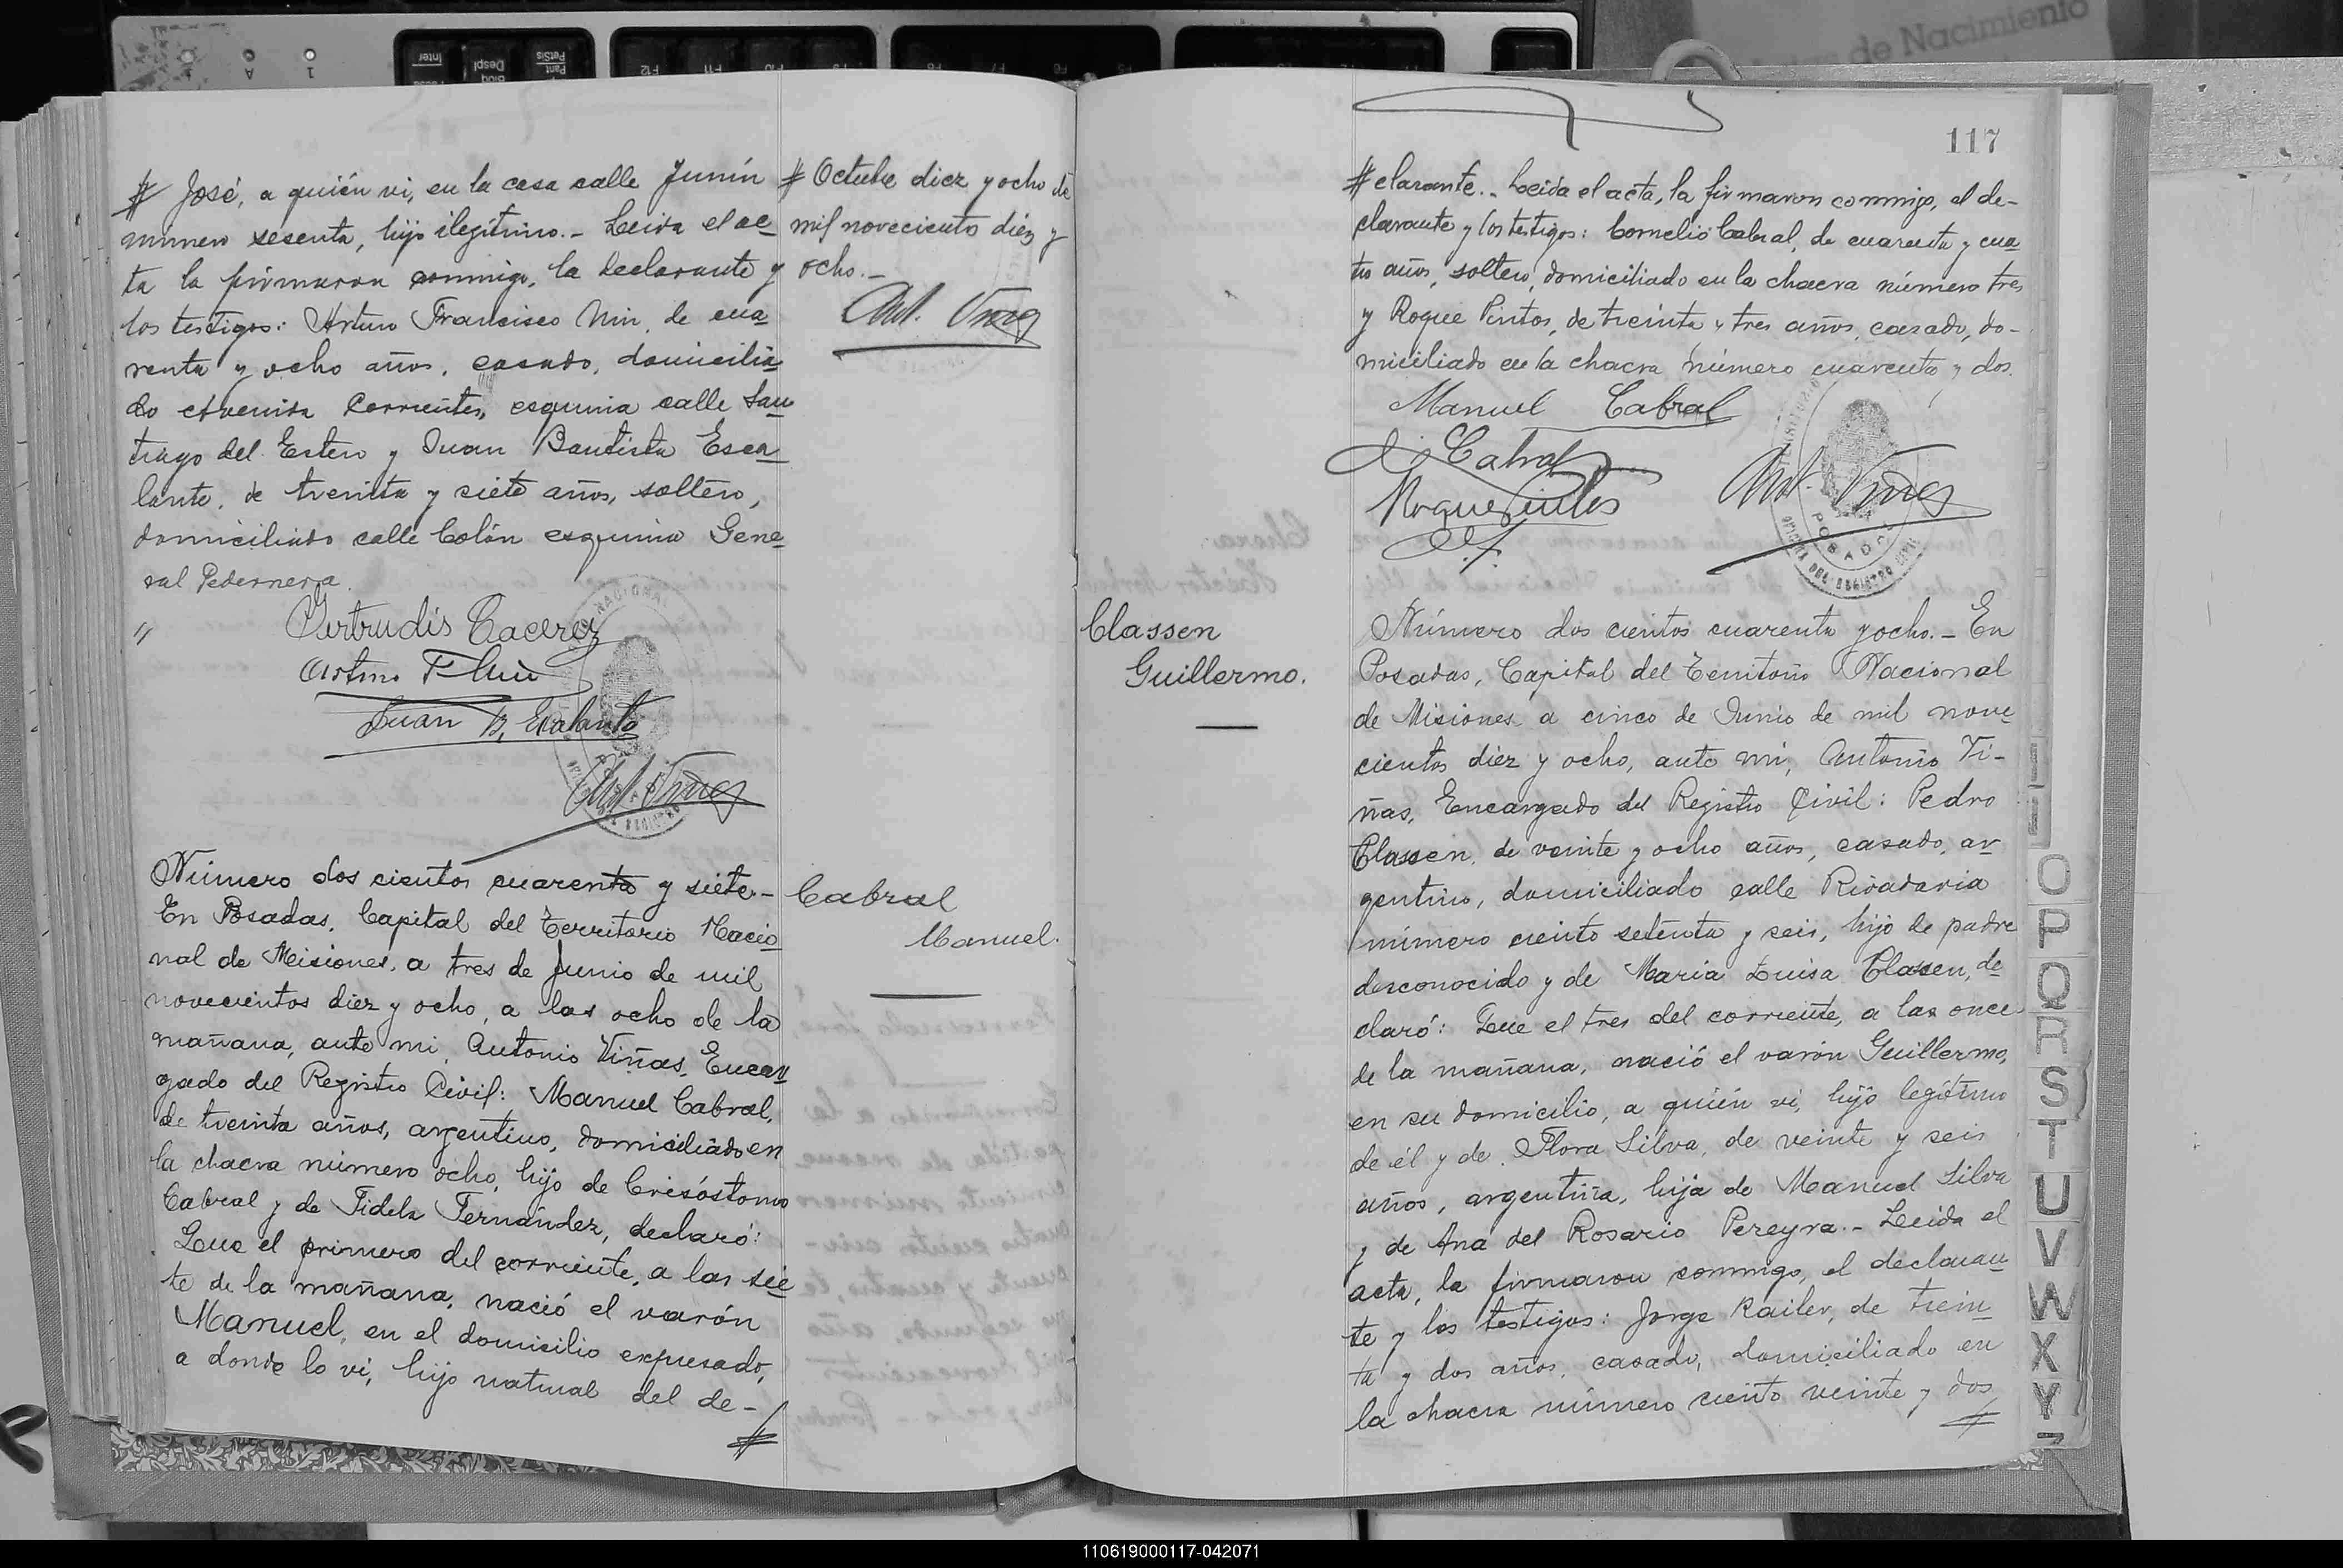 de Nacimiento
# José, a quién vi, en la casa calle Junín
número sesenta, hijo ilegítimo.- Leida el ac
ta la firmaron conmigo, la declarante y
los testigos: Arturo Francisco Nin, de cua
renta y ocho años, casado, domicilia
do Avenida Corrientes, esquina calle San
tiago del Estero y Juan Bautista Esca
lante, de treinta y siete años, soltero,
domiciliado calle Colón esquina Gene
ral Pedernera.
Gertrudis Cacerez
Arturo F. Nin
Juan B. Escalante
Ant. Viñas
# Octubre diez y ocho de
mil novecientos diez y
ocho.-
Ant. Viñas
Número dos cientos cuarenta y siete.-
En Posadas, Capital del Territorio Nacio
nal de Misiones, a tres de Junio de mil
novecientos diez y ocho, a las ocho de la
mañana, ante mi, Antonio Viñas, Encar
gado del Registro Civil: Manuel Cabral,
de treinta años, argentino, domiciliado en
la chacra número ocho, hijo de Crisóstomo
Cabral y de Fidela Fernández, declaró:
Que el primero del corriente, a las sie
te de la mañana, nació el varón
Manuel, en el domicilio expresado,
a donde lo vi, hijo natural del de-
#
Cabral
Manuel.
117
# clarante.- Leida el acta, la firmaron conmigo, el de-
clarante y los testigos: Cornelio Cabral, de cuarenta y cua
tro años, soltero, domiciliado en la chacra número tres
y Roque Pintos, de treinta y tres años, casado, do-
miciliado en la chacra número cuarenta y dos.
Manuel Cabral
C. Cabral
Roque Pintos
Ant. Viñas
POSADAS
OFICINA DEL REGISTRO CIVIL
Classen
Guillermo.
Número dos cientos cuarenta y ocho.- En
Posadas, Capital del Territorio Nacional
de Misiones a cinco de Junio de mil nove
cientos diez y ocho, ante mi, Antonio Vi-
ñas, Encargado del Registro Civil: Pedro
Classen, de veinte y ocho años, casado, ar
gentino, domiciliado calle Rivadavia
número ciento setenta y seis, hijo de padre
desconocido y de Maria Luisa Classen, de
claró: Que el tres del corriente, a las once
de la mañana, nació el varón Guillermo,
en su domicilio, a quién vi, hijo legítimo
de él y de Flora Silva, de veinte y seis
años, argentina, hija de Manuel Silva
y de Ana del Rosario Pereyra.- Leida el
acta, la firmaron conmigo, el declaran
te y los testigos: Jorge Railer, de trein
ta y dos años, casado, domiciliado en
la chacra número ciento veinte y dos
#
O
P
Q
R
S
T
U
V
W
X
Y
Z
110619000117-042071